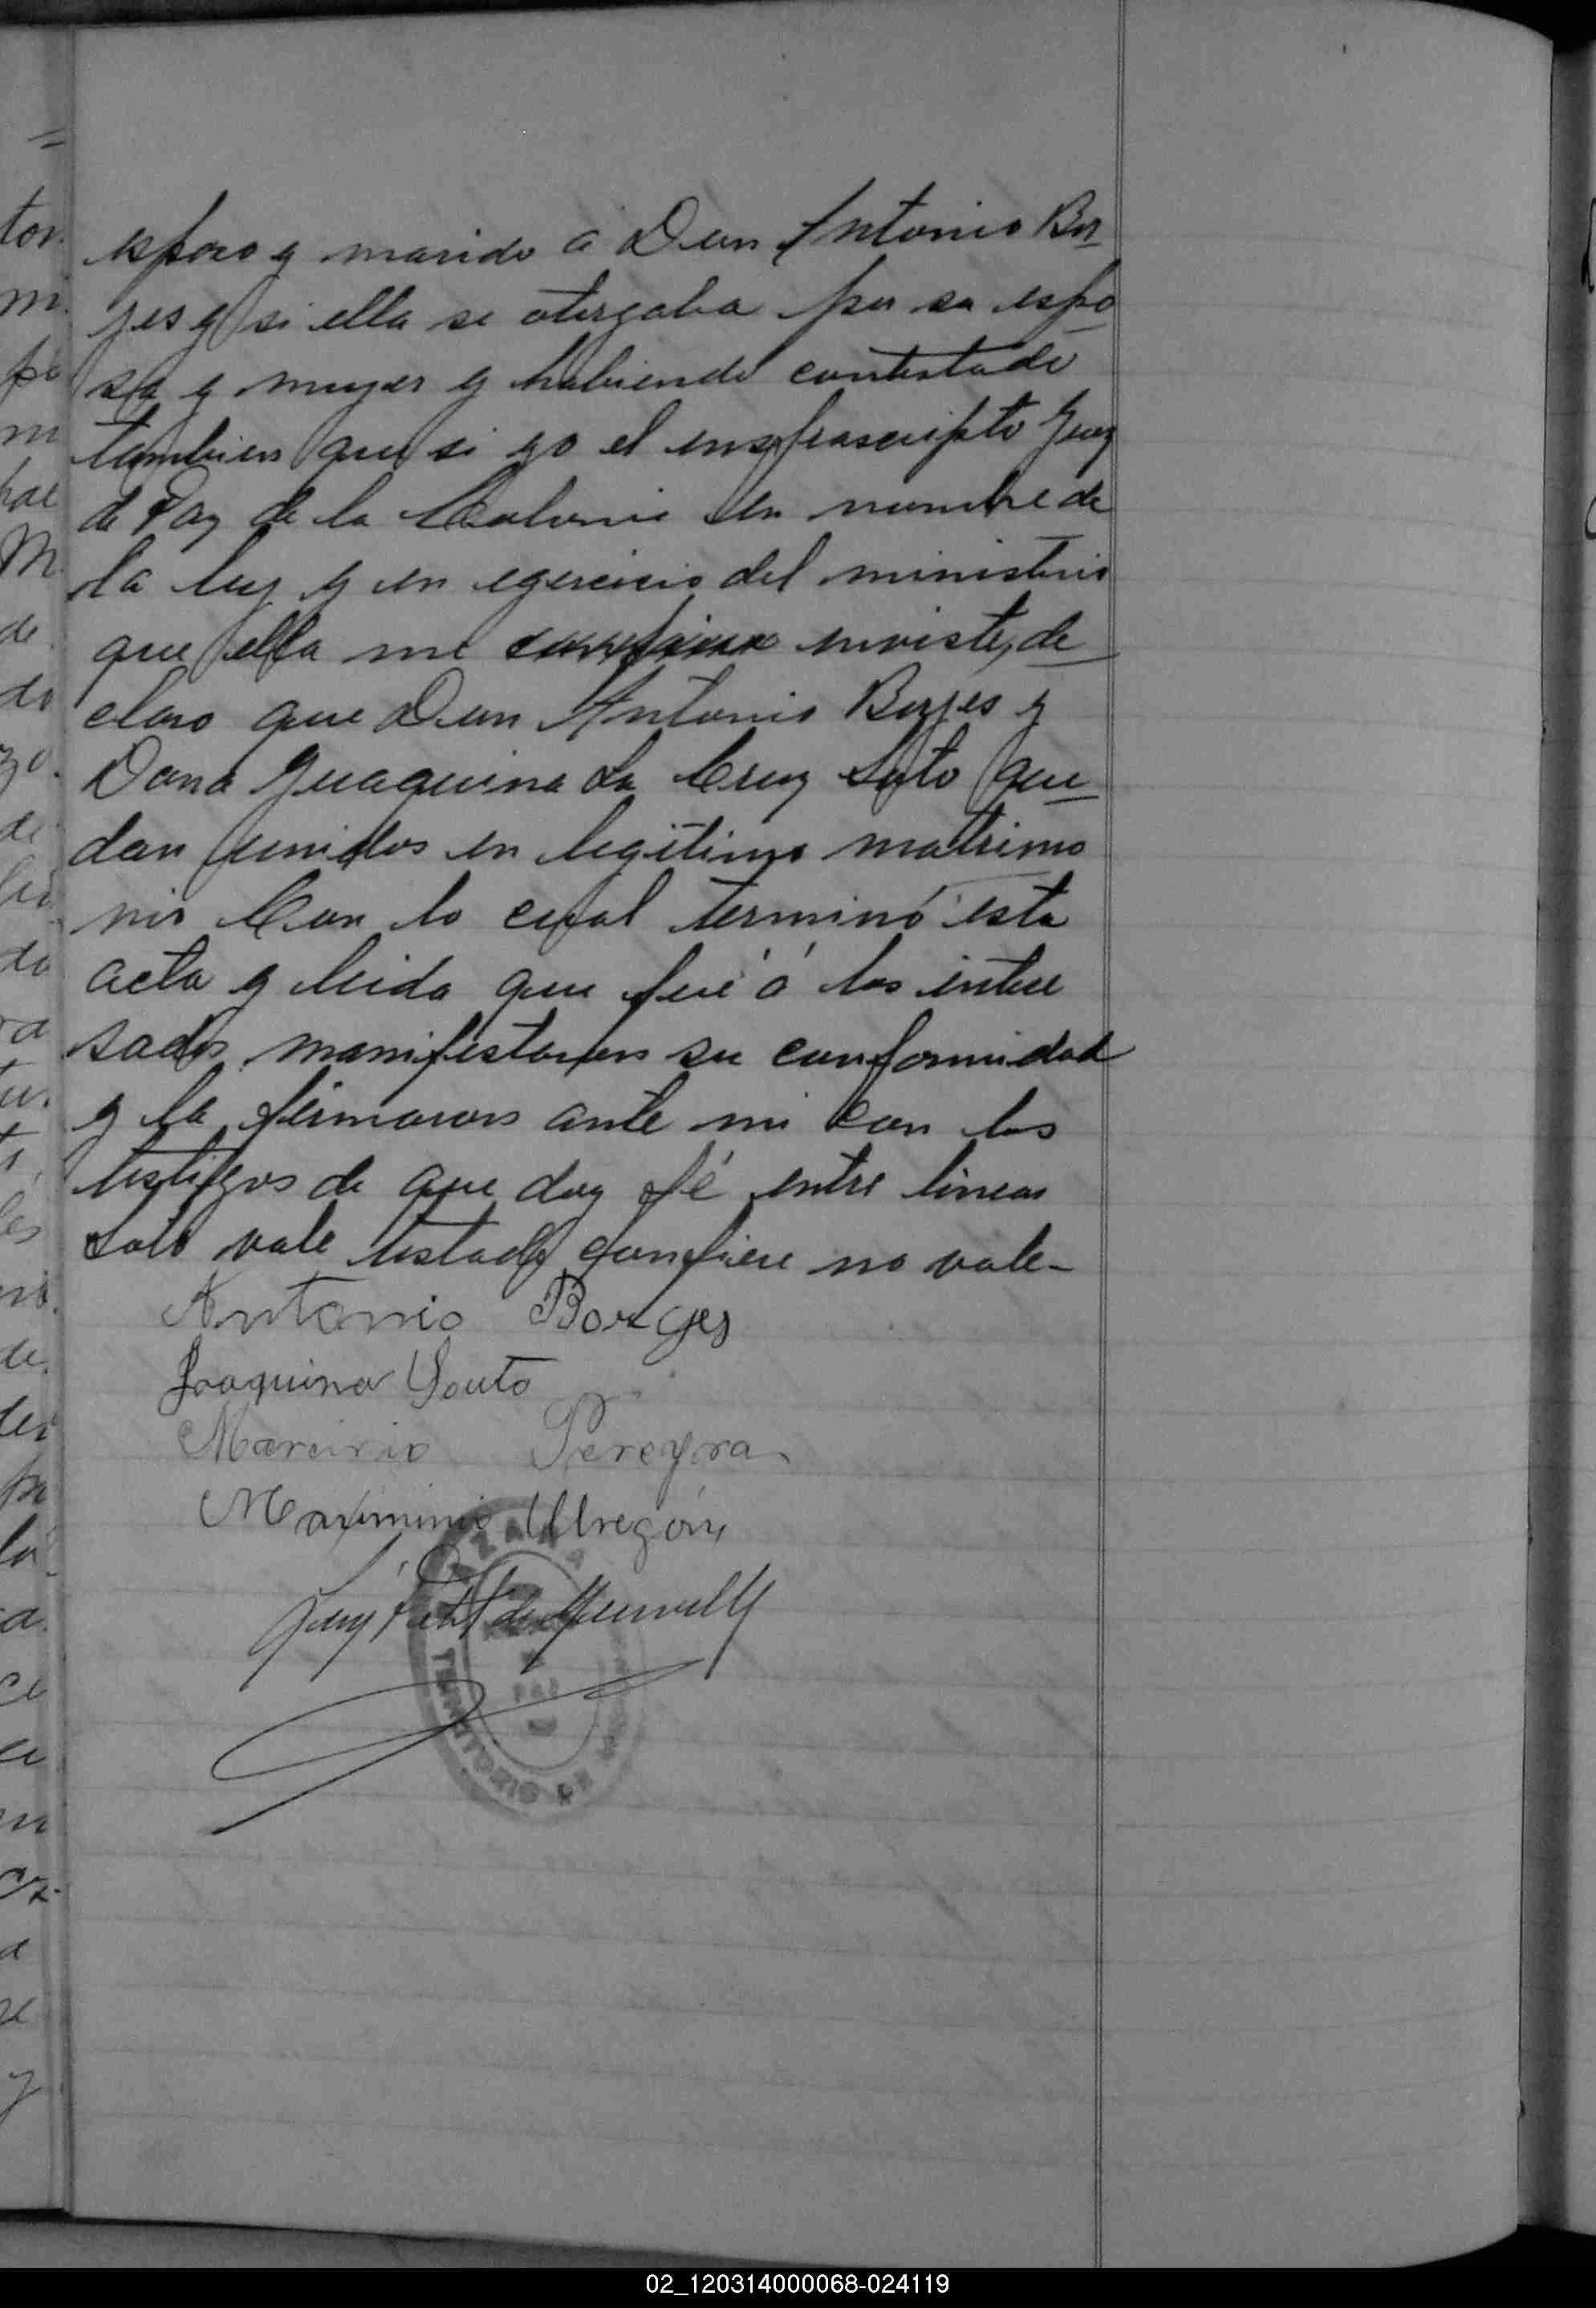 esposo y marido a Don Antonio Bor
jes y si ella se otorgaba por su espo
sa y mujer y habiendo contestado
tambien que si yo el infrascripto Juez
de Paz de la Colonia en nombre de
la ley y en egercicio del ministerio
que ella me confiere inviste, de
claro que Don Antonio Borjes y
Dona Juaquina La Cruz Soto que
dan unidos en legitimo matrimo
nio Con lo cual terminó esta
acta y leida que fué á los intere
sados manifestaron su conformidad
y la firmaron ante mi con los
testigos de que doy fé entre lineas
Soto vale testado confiere no vale-
Antonio Borges
Joaquina Souto
Pereyra
Maximinio Obregón
AZARA
02_120314000068-024119